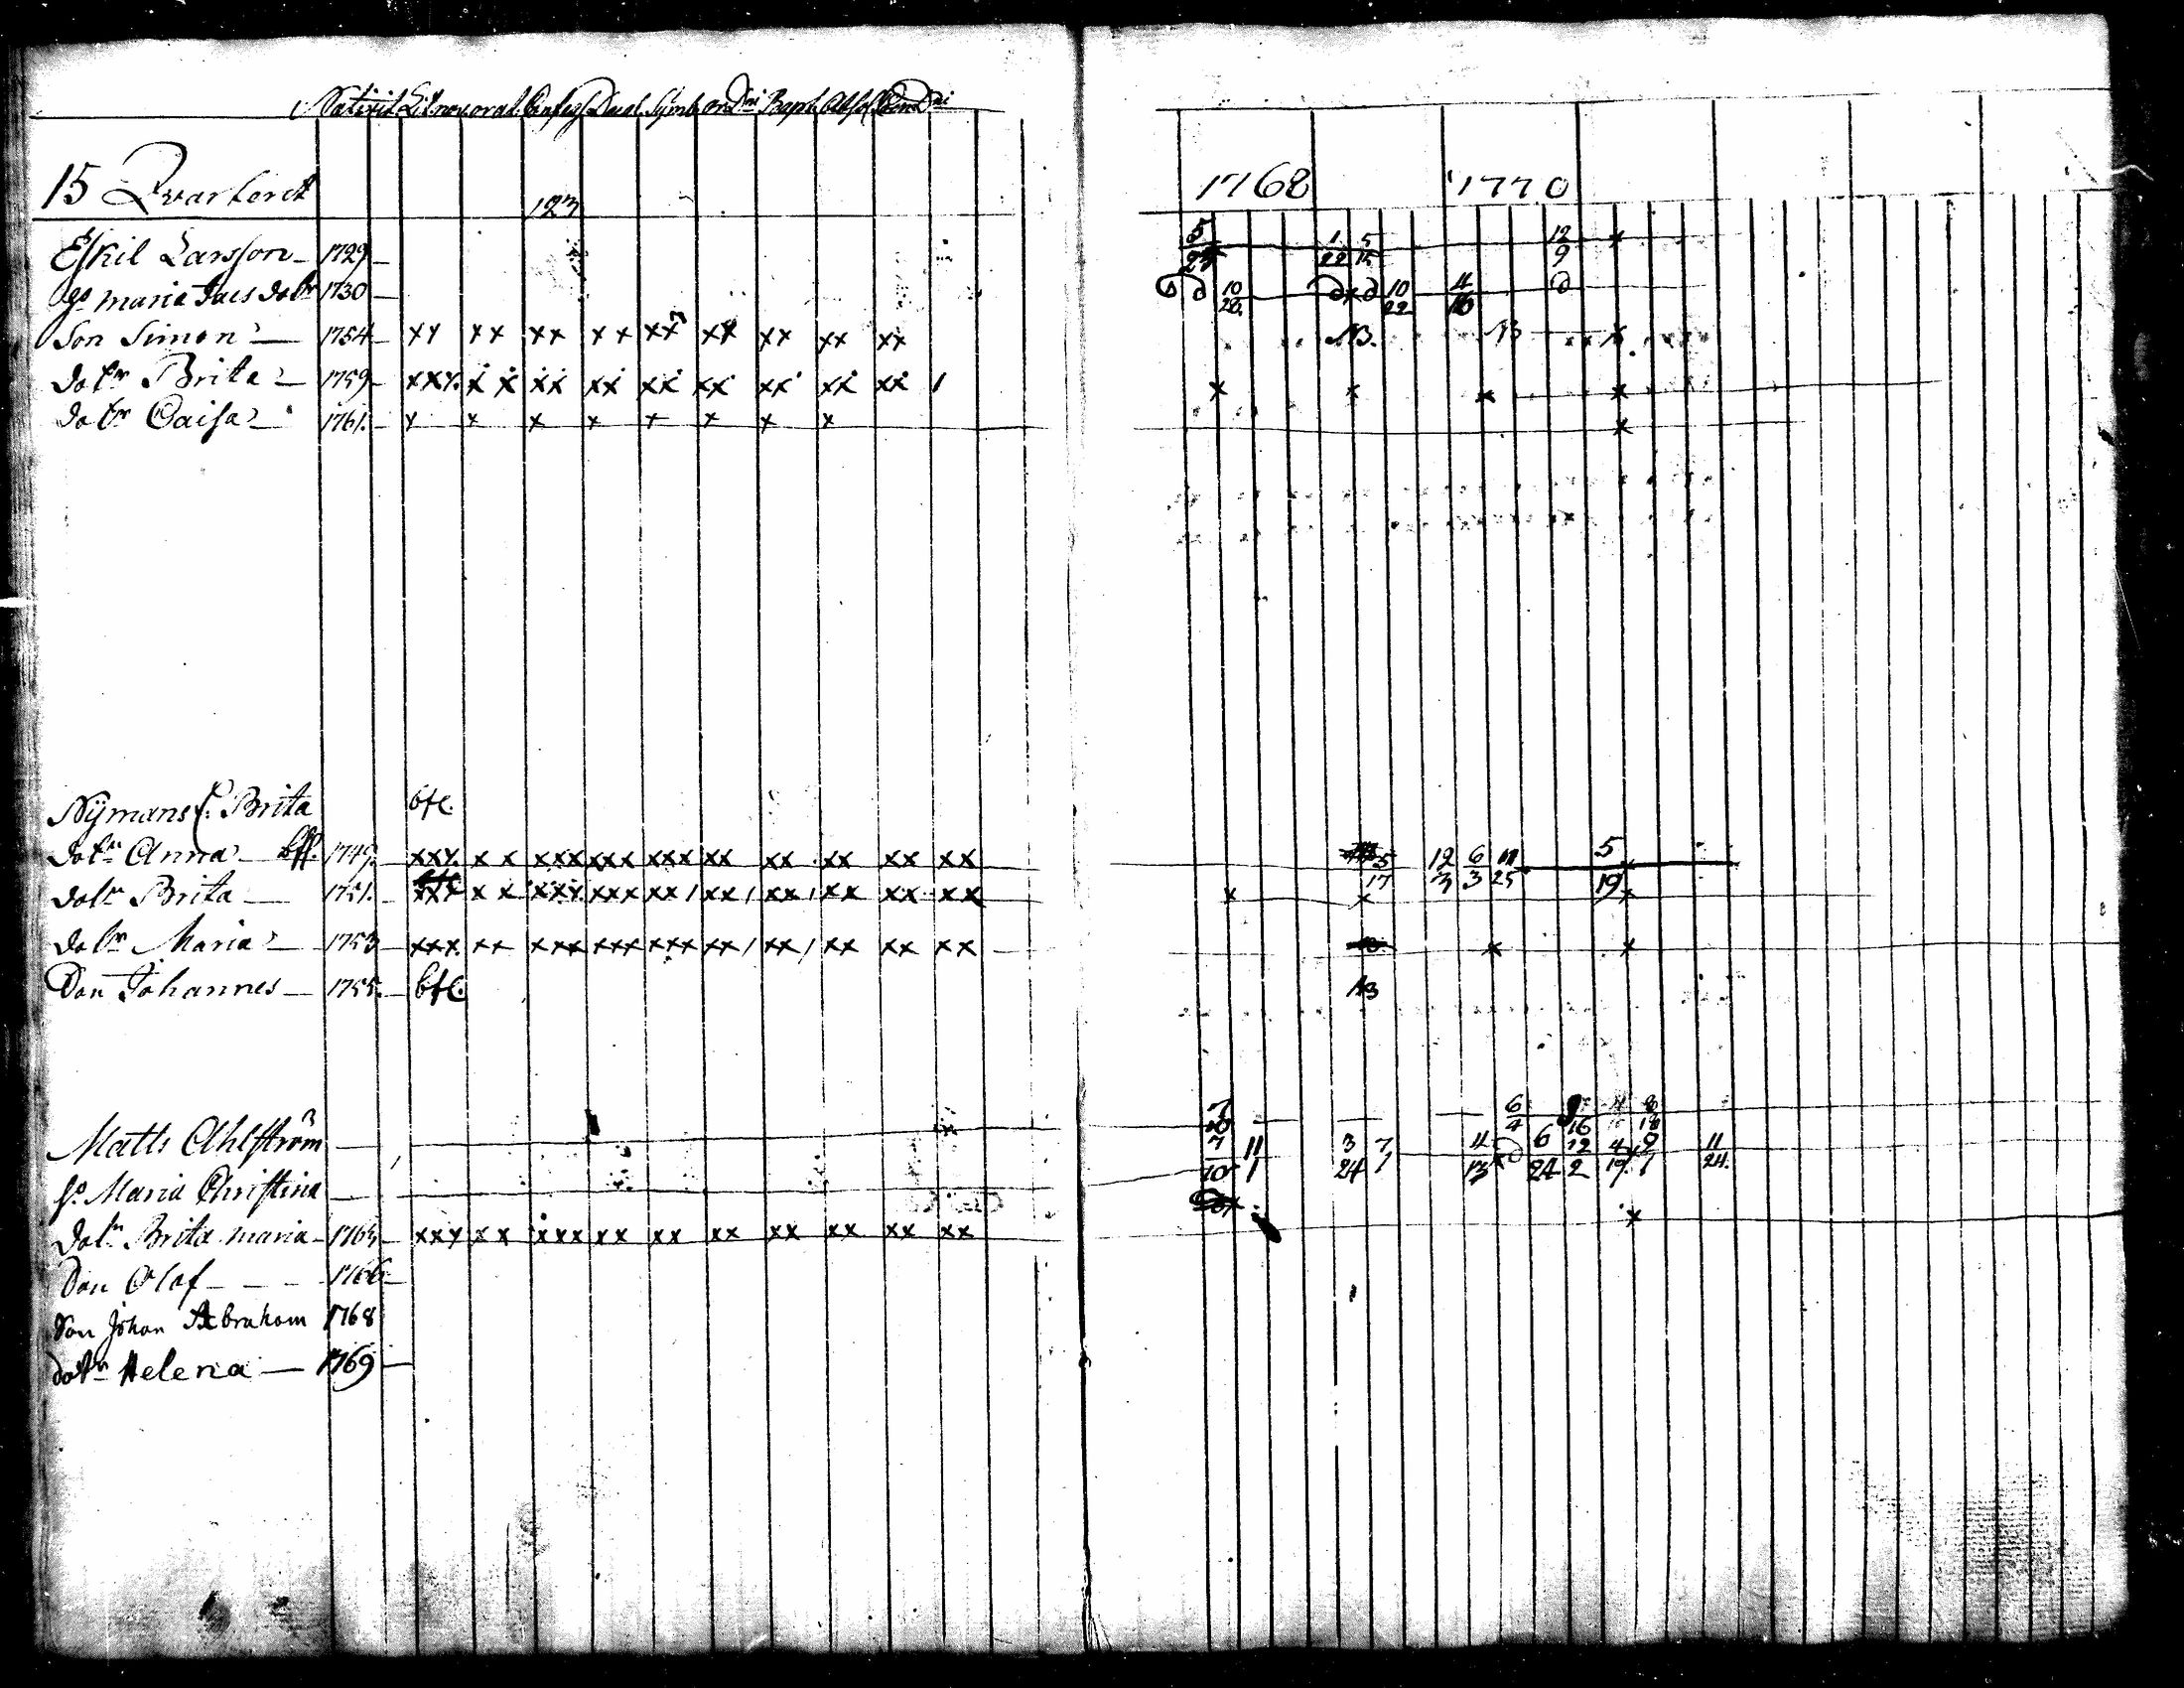 Nativit Lit. nov. orat. Confes Decal. Symb. or. Dni Bapt. Absol. Cœn Dni
15 Qvarteret 123 1768 1770
Eskil Larsson 1729 5 1 5 12 x
22 15 9
ho Maria dotr 1730 10 10 4
28. 22 16
Son Simon 1754 xx xx xx xx xx xx xx xx xx NB. NB x
dotr Brita 1759 xxx. xx xx xx xx xx xx xx xx / x x x x
dotr Caisa 1761. x x x x x x x x x
Nÿmans E. Brita bfl.
dotr Anna bfl. 1749. xxx. xx xxx xxx xxx xx xx xx xx xx 5 12 6 11 5
17 3 3 25 19
dotr Brita 1751. xxx xx xxx. xxx xx / xx / xx / xx xx xx x x x
dotr Maria 1753 xxx. xx xxx xxx xxx xx / xx / xx xx xx x x
Son Johannes 1755. bfl. NB
Matts Ahlström 7 6 9 8
10 4 16 18
ho Maria Christina 7 11 3 7 4 6 12 4 9 11
10 1 24 1 13 24 2 19 1 24.
dotr Brita Maria 1763 xxx xx xxx xx xx xx xx xx xx xx x
Son Olof 1766
Son Johan Abraham 1768
dotr Helena 1769